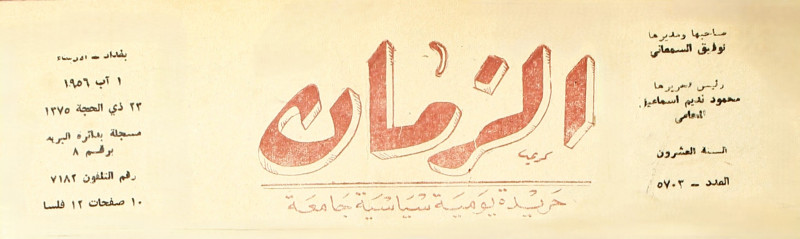 صاحبها ومديرها
توفيق السمعاني
رئيس تحريرها
محمود نديم اسماعيل
المحامي
السنة العشرون
العدد - ٥٧٠٣
الزمان
كريم
جريدة يومية سياسية جامعة
بغداد - الاربعاء
١ آب ١٩٥٦
٢٣ ذي الحجة ١٣٧٥
مسجلة بدائرة البريد
برقم ٨
رقم التلفون ٧١٨٢
١٠ صفحات ١٢ فلسا